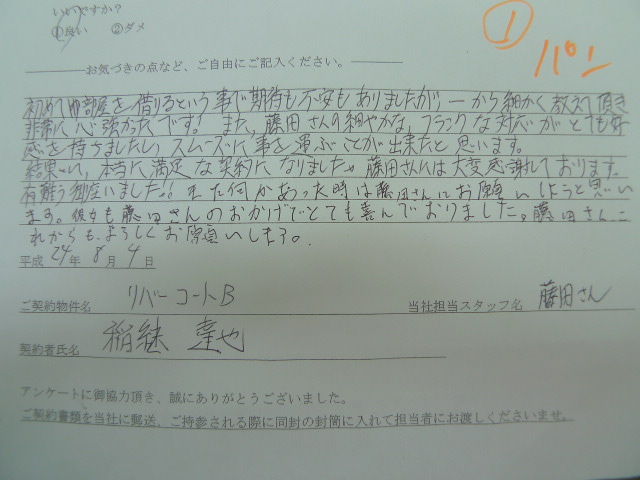 いかがですか？
①良い ②ダメ
①
お気づきの点など、ご自由にご記入ください。
初めて部屋を借りるという事で期待も不安もありましたが、一から細かく教えて頂き
非常に心強かったです！また、藤田さんの細やかな、フランクな対応がとても好
感を持ちましたし、スムーズに事を運ぶことが出来たと思います。
結果、本当に満足な契約になりました。藤田さんには大変感謝しております。
有難う御座いました!! また何かあった時は藤田さんにお願いしようと思い
ます。彼女も藤田さんのおかげでとても喜んでおりました。藤田さんこ
れからもよろしくお願いします。
平成 24年 8月 4日
ご契約物件名 リバーコートB 当社担当スタッフ名 藤田さん
契約者氏名 稲継 達也
アンケートに御協力頂き、誠にありがとうございました。
ご契約書類を当社に郵送、ご持参される際に同封の封筒に入れて担当者にお渡しくださいませ。